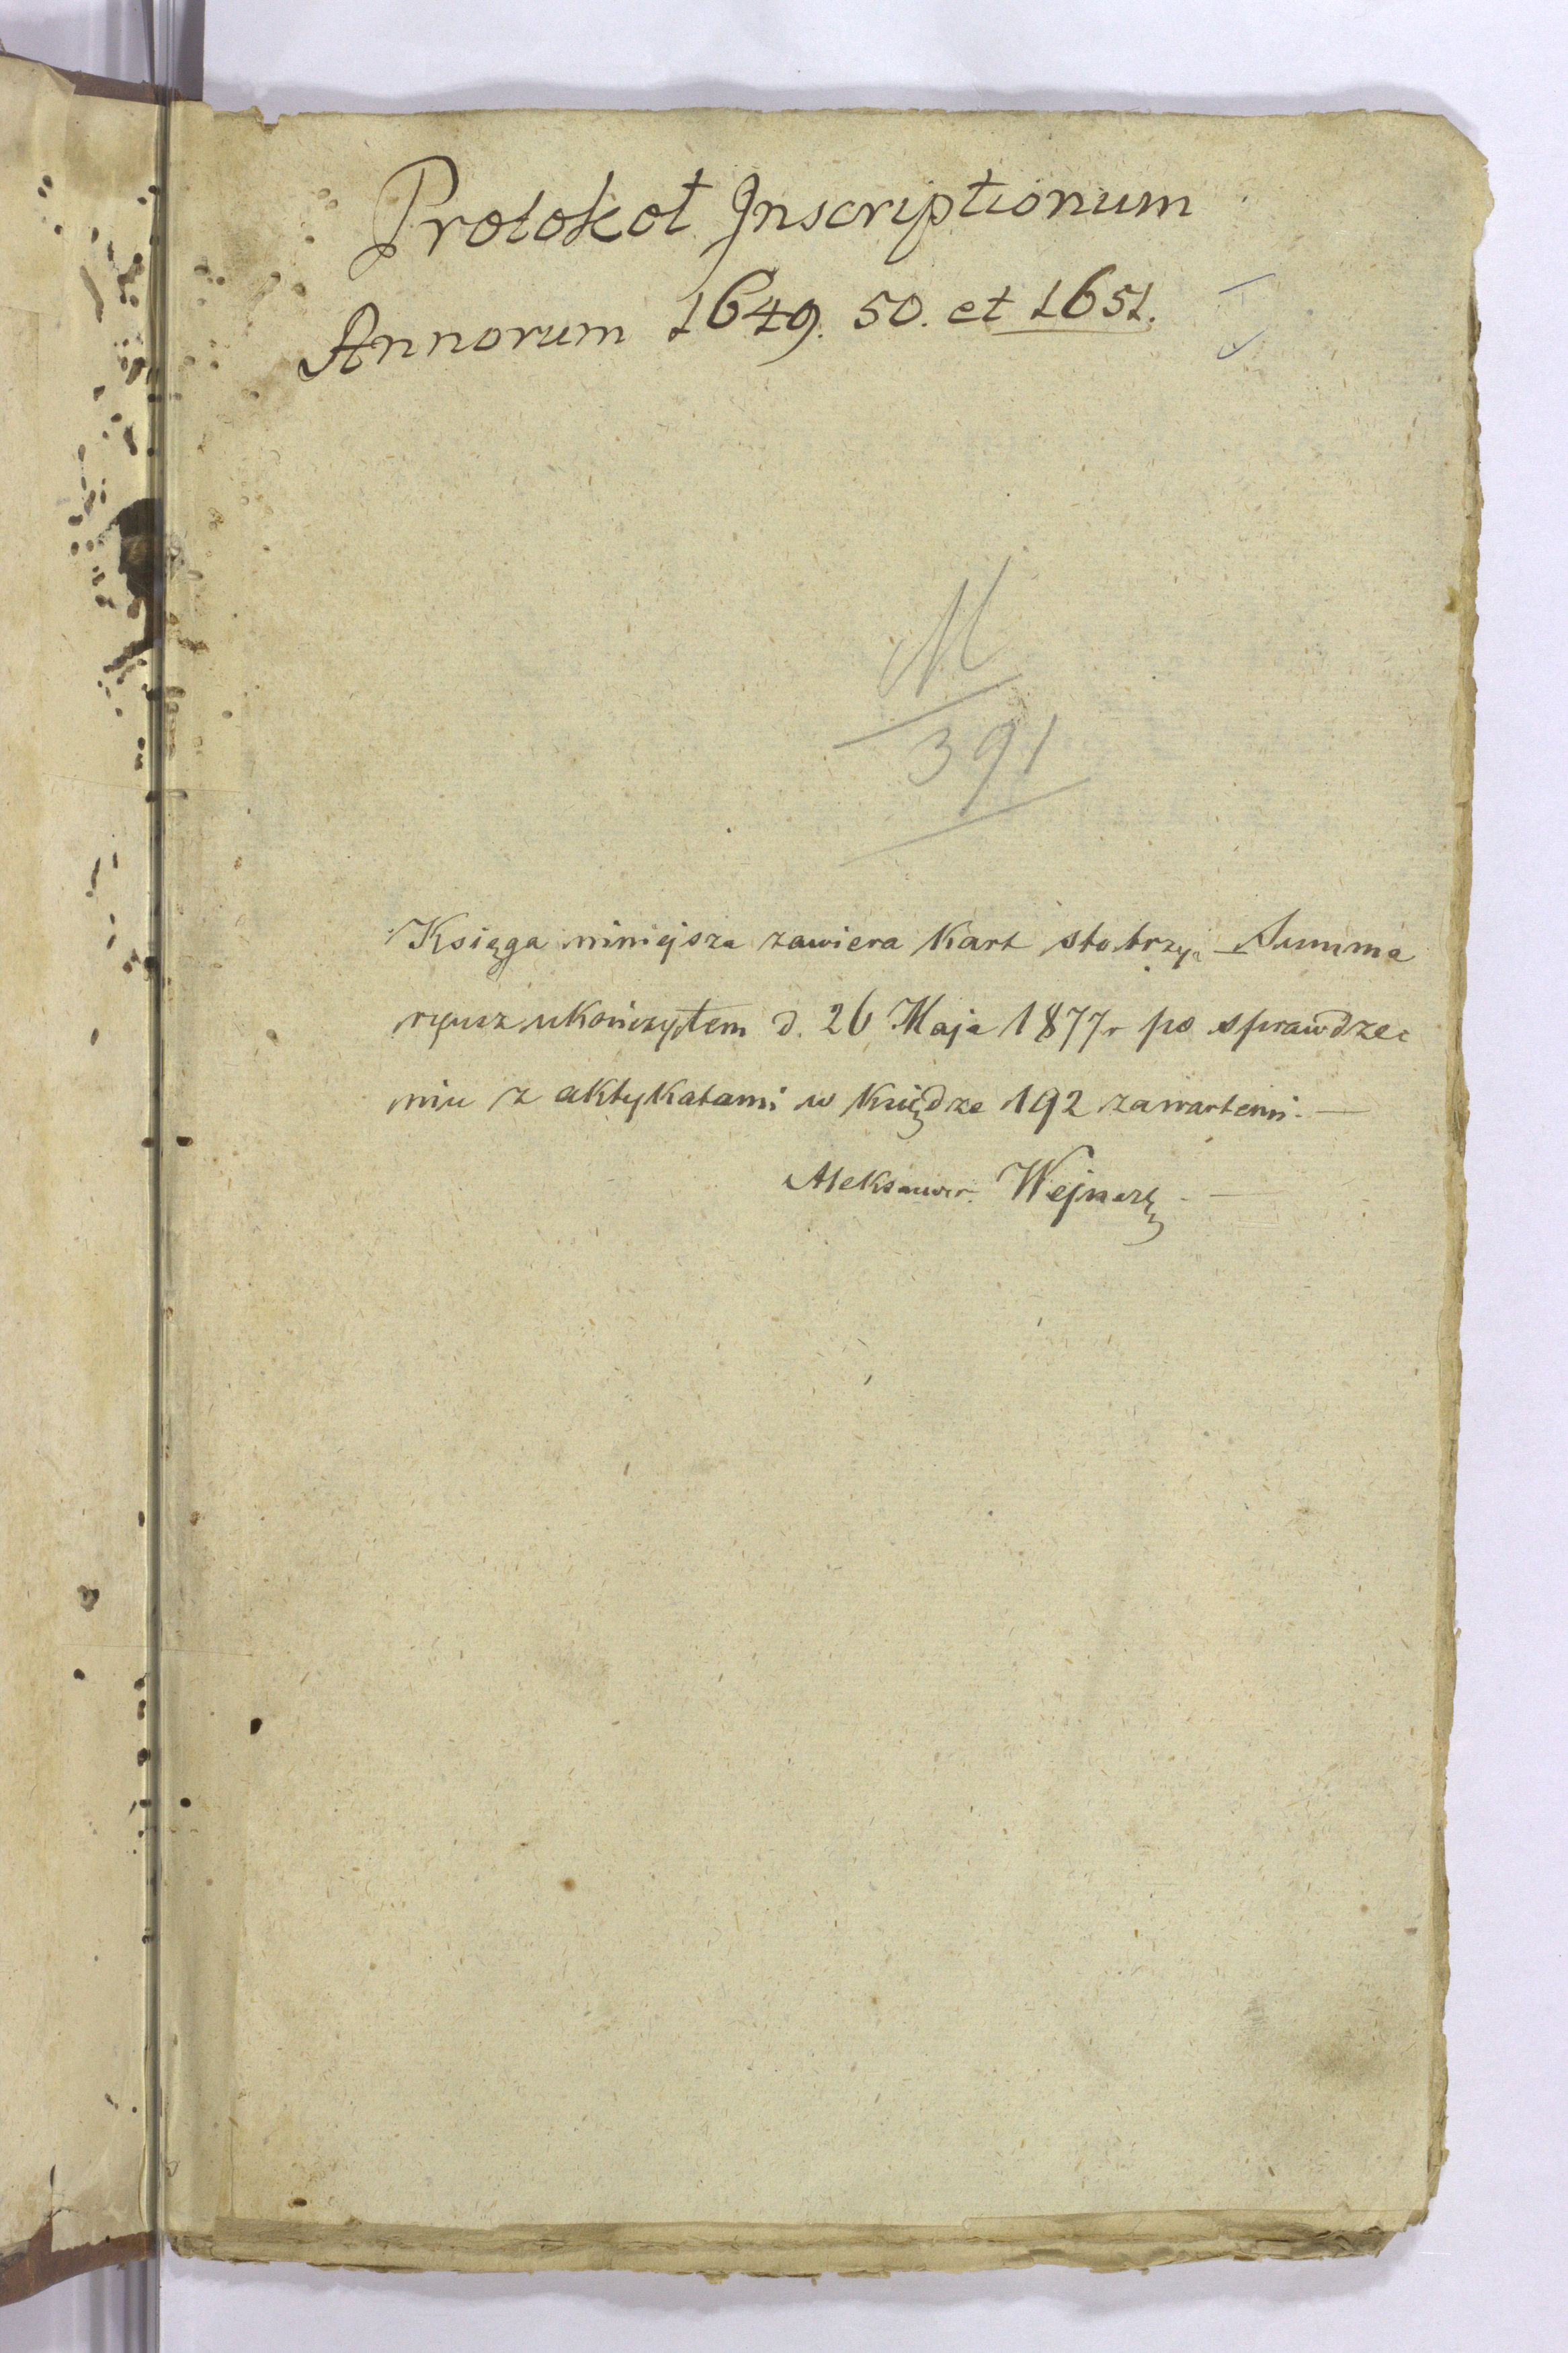 Protokoł Inscriptionum
Annorum 1649. 50. et 1651.
M
391
Księga niniejsza zawiera Kart sto trzy. – Summa
ryusz ukończyłem d. 26 Maja 1877 r po sprawdze-
niu z aktykatami w księdze 192 zawartemi. —
Aleksander Wejnert